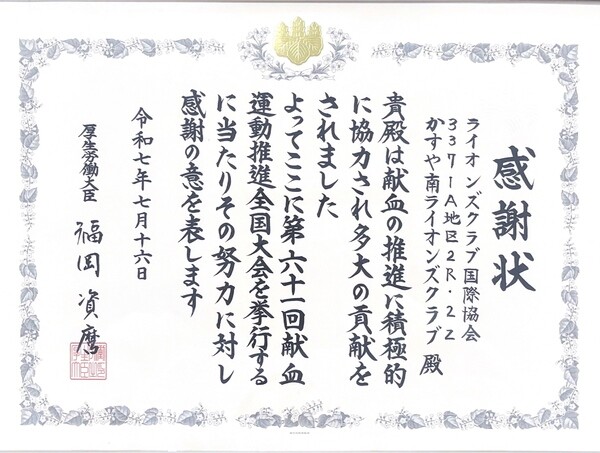 感謝状
ライオンズクラブ国際協会
337-A地区2R・2Z
かすや南ライオンズクラブ 殿
貴殿は献血の推進に積極的
に協力され多大の貢献を
されました
よってここに第六十一回献血
運動推進全国大会を挙行する
に当たりその努力に対し
感謝の意を表します
令和七年七月十六日
厚生労働大臣 福岡資麿